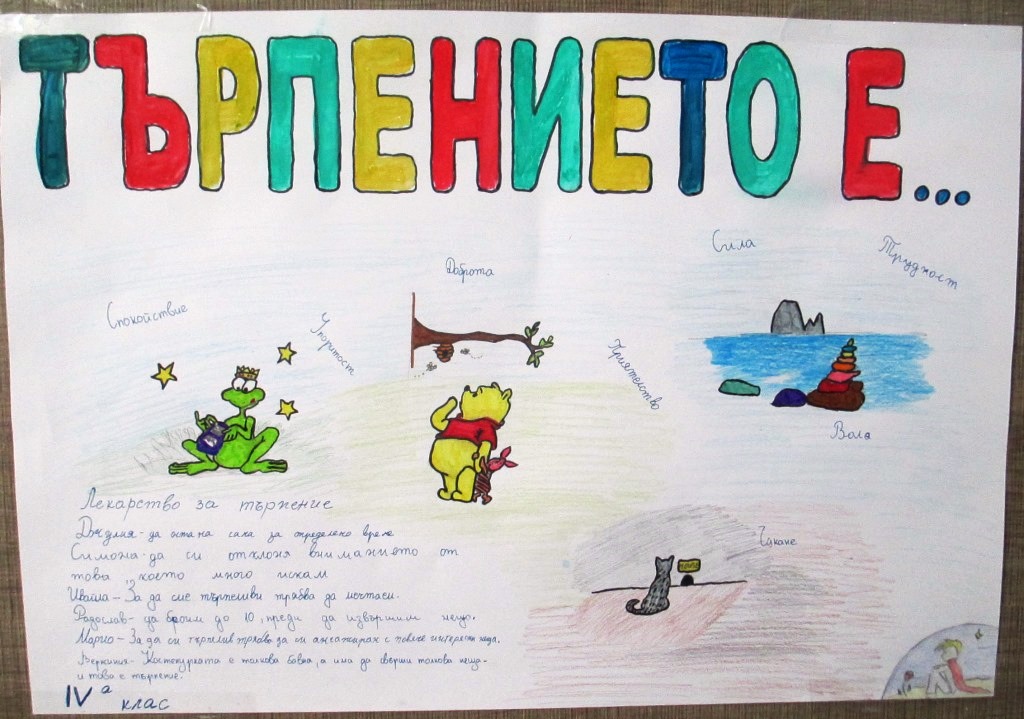 ТЪРПЕНИЕТО Е...
Сила
Трудност
Доброта
Спокойствие
Упоритост
Приятелство
Воля
Чакане
Лекарство за търпение
Джулия - да остана сама за определено време
Симона - да си отклоня вниманието от
това, което много искам
Ивайла - За да сме търпеливи трябва да мечтаем.
Радослав - да броим до 10, преди да извършим нещо.
Марио - За да си търпелив трябва да си ангажиран с повече интересни неща.
Вергиния - Костенурката е толкова бавна, а има да свърши толкова неща -
и това е търпение.
IV а клас